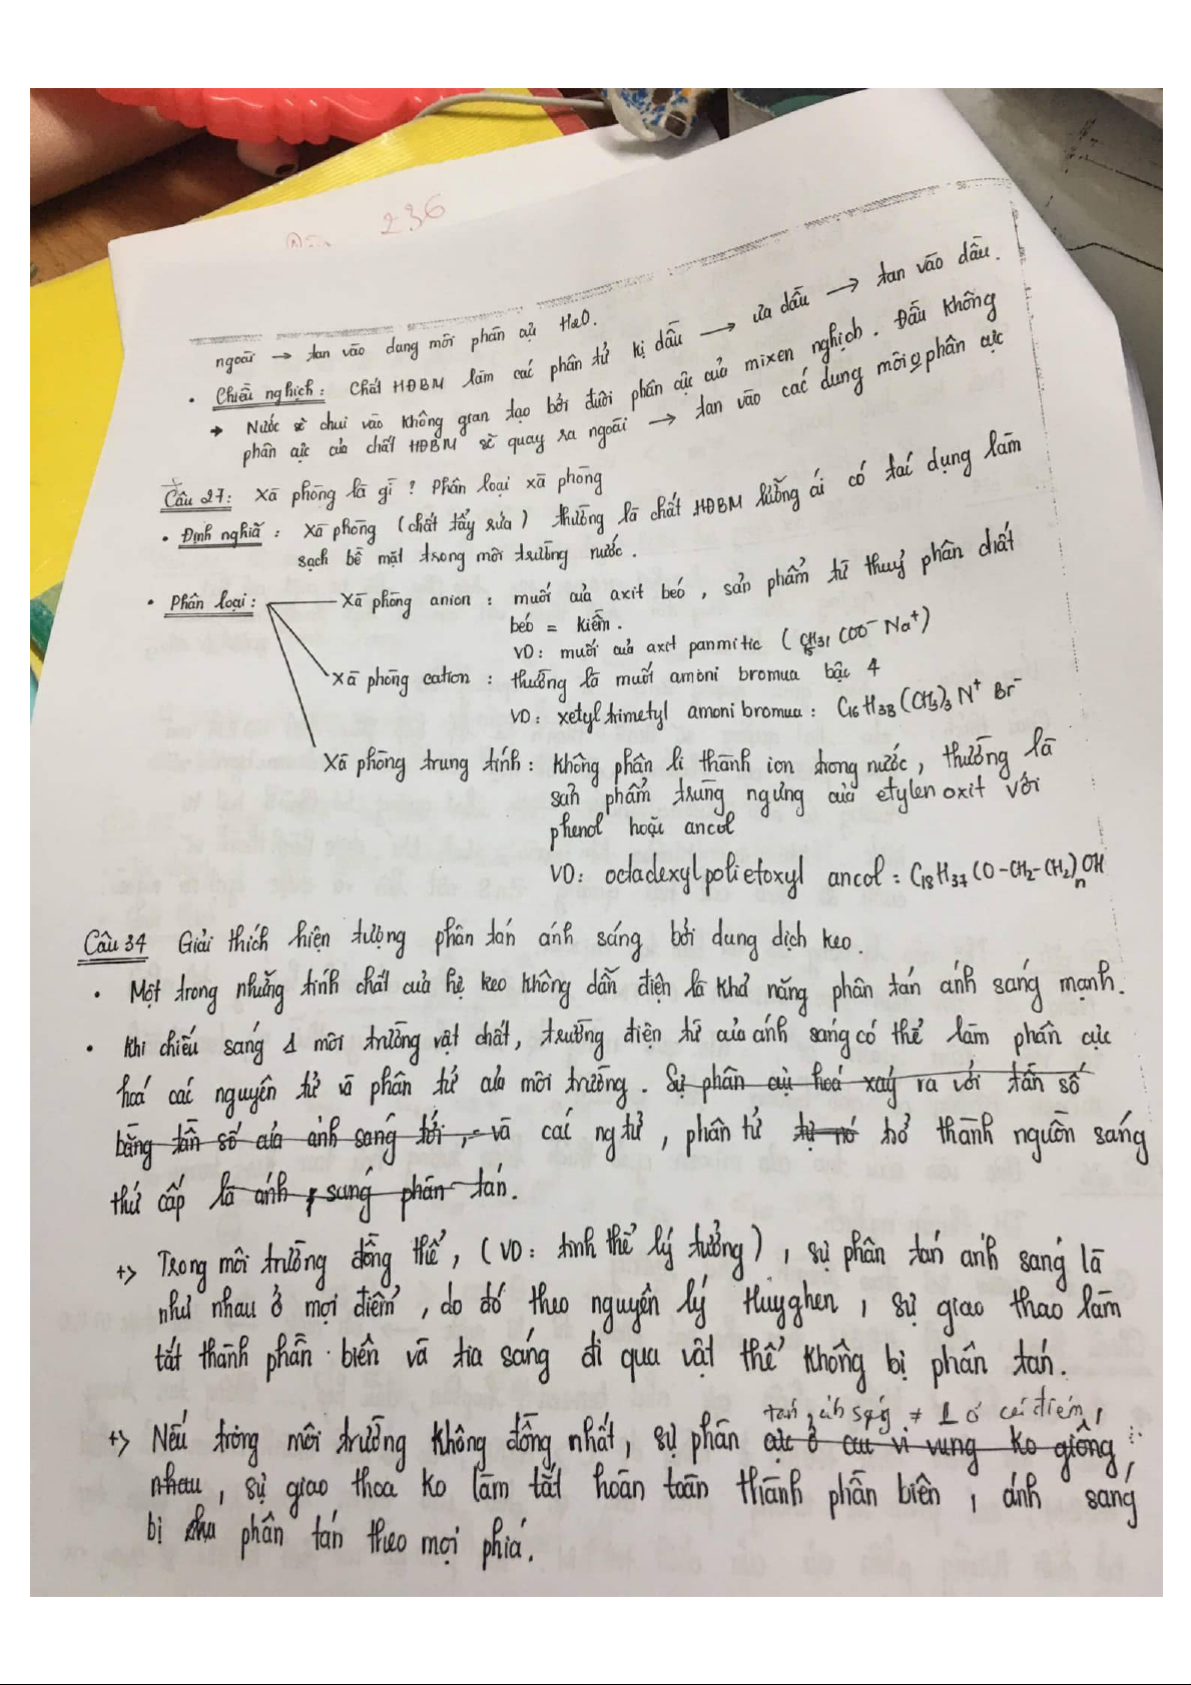 236
ngoài → tan vào dung môi phân cực H2O.
• Chiều nghịch: Chất HĐBM làm các phân tử kị dầu → ưa dầu → tan vào dầu.
→ Nước sẽ chui vào không gian tạo bởi đuôi phân cực của mixen nghịch. Đầu không
phân cực của chất HĐBM sẽ quay ra ngoài → tan vào các dung môi o phân cực
Câu 27: Xà phòng là gì? Phân loại xà phòng
• Định nghĩa: Xà phòng (chất tẩy rửa) thường là chất HĐBM lưỡng ái có tác dụng làm
sạch bề mặt trong môi trường nước.
• Phân loại: Xà phòng anion: muối của axit béo, sản phẩm từ thuỷ phân chất
béo = kiềm.
VD: muối của axit panmitic (C15H31COO- Na+)
Xà phòng cation: thường là muối amoni bromua bậc 4
VD: xetyltrimetyl amoni bromua: C16H33(CH3)3N+ Br-
Xà phòng trung tính: Không phân li thành ion trong nước, thường là
sản phẩm trùng ngưng của etylen oxit với
phenol hoặc ancol
VD: octadexylpolietoxyl ancol: C18H37(O-CH2-CH2)nOH
Câu 34 Giải thích hiện tượng phân tán ánh sáng bởi dung dịch keo.
• Một trong những tính chất của hệ keo không dẫn điện là khả năng phân tán ánh sáng mạnh.
• Khi chiếu sáng 1 môi trường vật chất, trường điện từ của ánh sáng có thể làm phân cực
hoá các nguyên tử và phân tử của môi trường. Sự phân cực hoá xảy ra với tần số
bằng tần số của ánh sáng tới, và các ng tử, phân tử trở thành nguồn sáng
thứ cấp là ánh sáng phân tán.
+> Trong môi trường đồng thể, (VD: tinh thể lý tưởng), sự phân tán ánh sáng là
như nhau ở mọi điểm, do đó theo nguyên lý Huyghen, sự giao thao làm
tắt thành phần biên và tia sáng đi qua vật thể không bị phân tán.
tán ánh sáng ≠ ở các điểm,
+> Nếu trong môi trường không đồng nhất, sự phân cực ở các vi vùng ko giống
nhau, sự giao thoa ko làm tắt hoàn toàn thành phần biên, ánh sáng
bị phân tán theo mọi phía.